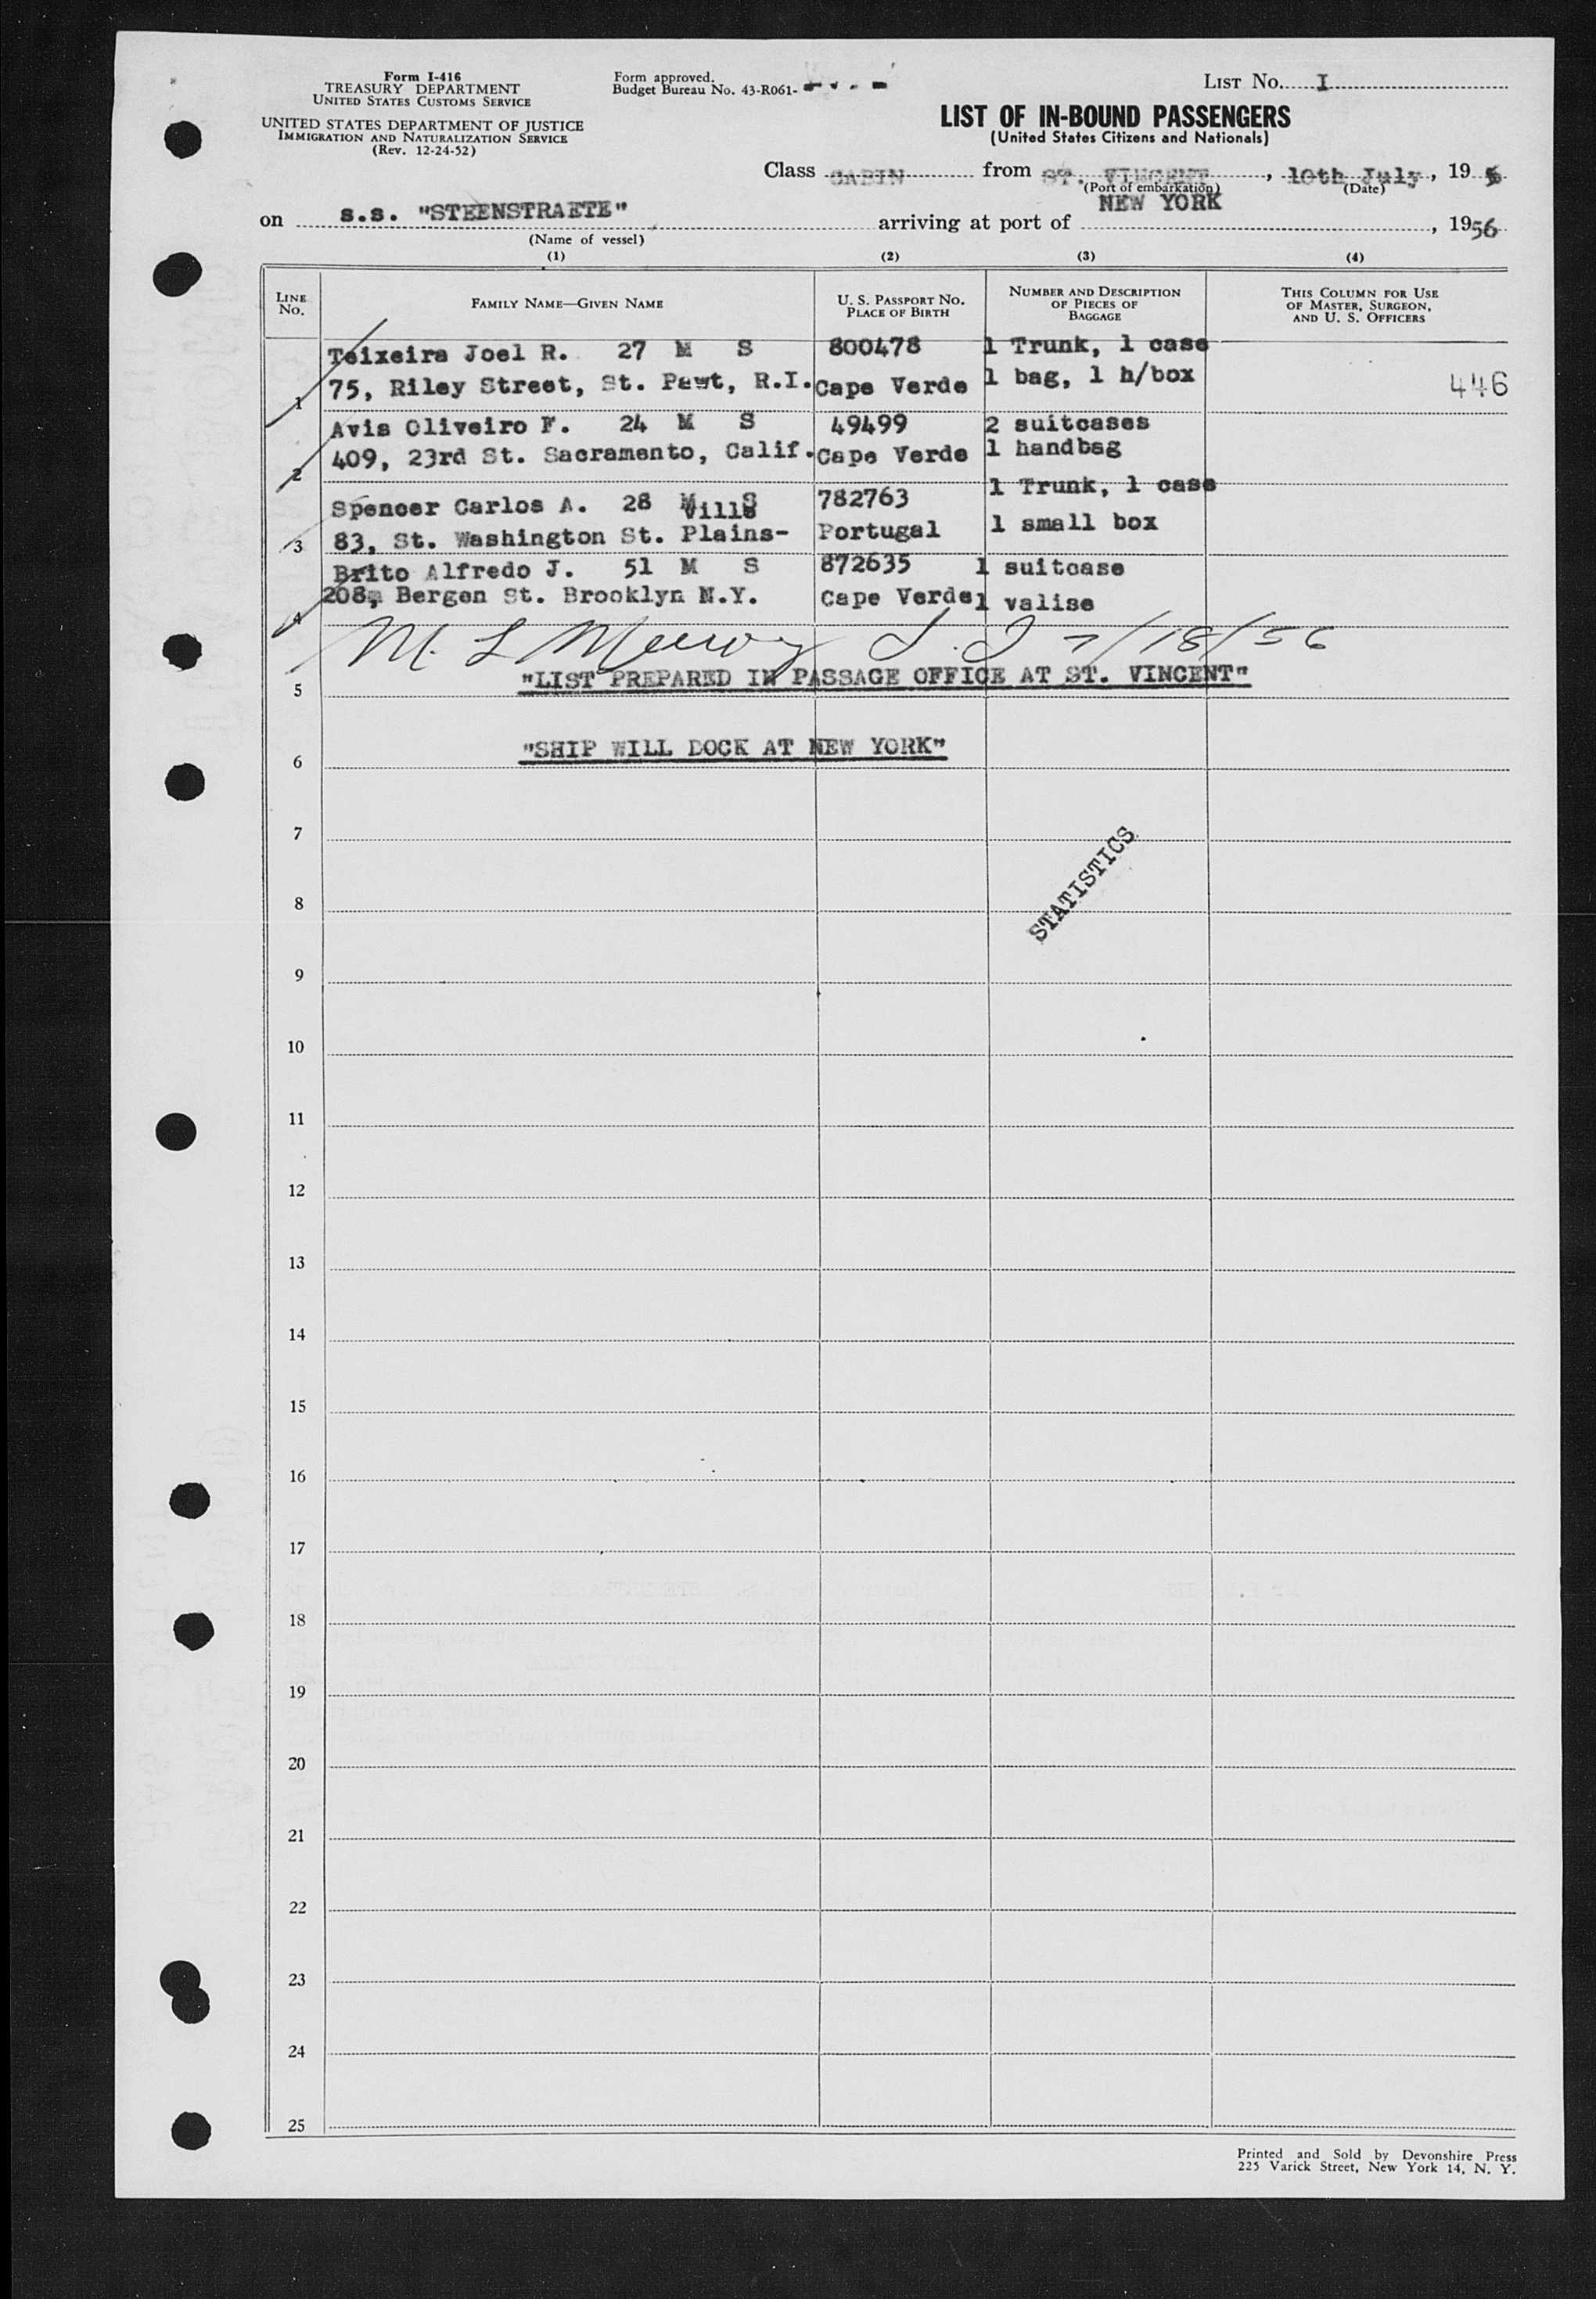 Form I-416
TREASURY DEPARTMENT
UNITED STATES CUSTOMS SERVICE
UNITED STATES DEPARTMENT OF JUSTICE
IMMIGRATION AND NATURALIZATION SERVICE
(Rev. 12-24-52)
Form approved.
Budget Bureau No. 43-R061-
LIST No. I
LIST OF IN-BOUND PASSENGERS
(United States Citizens and Nationals)
Class CABIN from ST. VINCENT, 10th July, 19
(Port of embarkation) (Date)
on s.s. "STEENSTRAETE" arriving at port of NEW YORK, 1956
(Name of vessel)
(1) (2) (3) (4)
LINE No. FAMILY NAME—GIVEN NAME U. S. PASSPORT NO. PLACE OF BIRTH NUMBER AND DESCRIPTION OF PIECES OF BAGGAGE THIS COLUMN FOR USE OF MASTER, SURGEON, AND U. S. OFFICERS
Teixeira Joel R. 27 M S 800478 1 Trunk, 1 case
1 75, Riley Street, St. Pawt, R.I. Cape Verde 1 bag, 1 h/box 446
Avis Oliveiro F. 24 M S 49499 2 suitcases
2 409, 23rd St. Sacramento, Calif. Cape Verde 1 handbag
Spencer Carlos A. 28 M S 782763 1 Trunk, 1 case
Ville
3 83, St. Washington St. Plains- Portugal 1 small box
Brito Alfredo J. 51 M S 872635 1 suitcase
4 208, Bergen St. Brooklyn N.Y. Cape Verde 1 valise
M. L 7/18/56
5 "LIST PREPARED IN PASSAGE OFFICE AT ST. VINCENT"
6 "SHIP WILL DOCK AT NEW YORK"
7
STATISTICS
8
9
10
11
12
13
14
15
16
17
18
19
20
21
22
23
24
25
Printed and Sold by Devonshire Press
225 Varick Street, New York 14, N. Y.